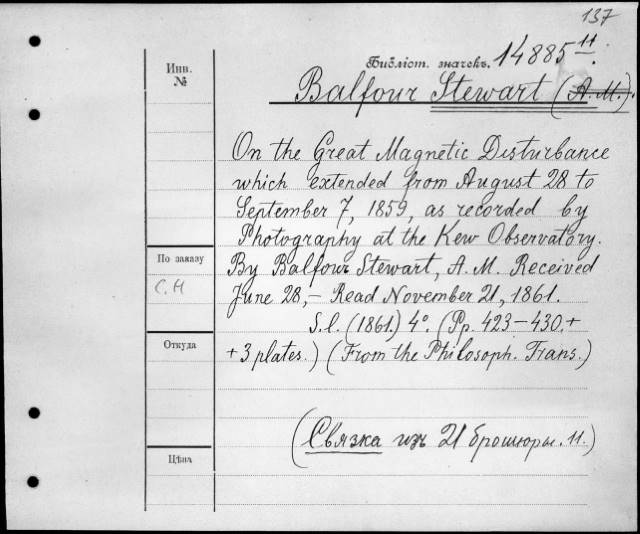 137
Библіот. значекъ. 14885 11.
Инв. №
Balfour Stewart (A. M.).
On the Great Magnetic Disturbance
which extended from August 28 to
September 7, 1859, as recorded by
Photography at the Kew Observatory.
По заказу
By Balfour Stewart, A. M. Received
С.Н
June 28, – Read November 21, 1861.
S. l. (1861.) 4°. (Pp. 423–430. +
Откуда
+ 3 plates.) (From the Philosoph. Trans.)
(Связка изъ 21 брошюры. 11.)
Цѣна